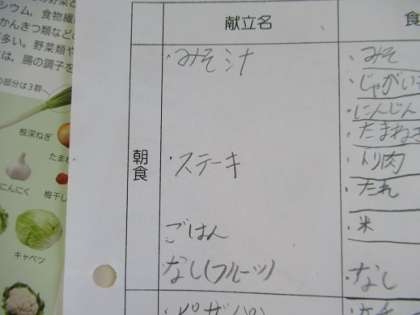 シウム、食物繊維
かんきつ類などの
多い。野菜類や
は、腸の調子を
の部分は3群
根深ねぎ
たま
にんにく
梅干し
キャベツ
献立名
食
朝食
・みそ汁
・みそ
・じゃがい
・にんじん
・たまねぎ
・ステーキ
・トリ肉
・たれ
ごはん
・米
なし(フルーツ)
・なし